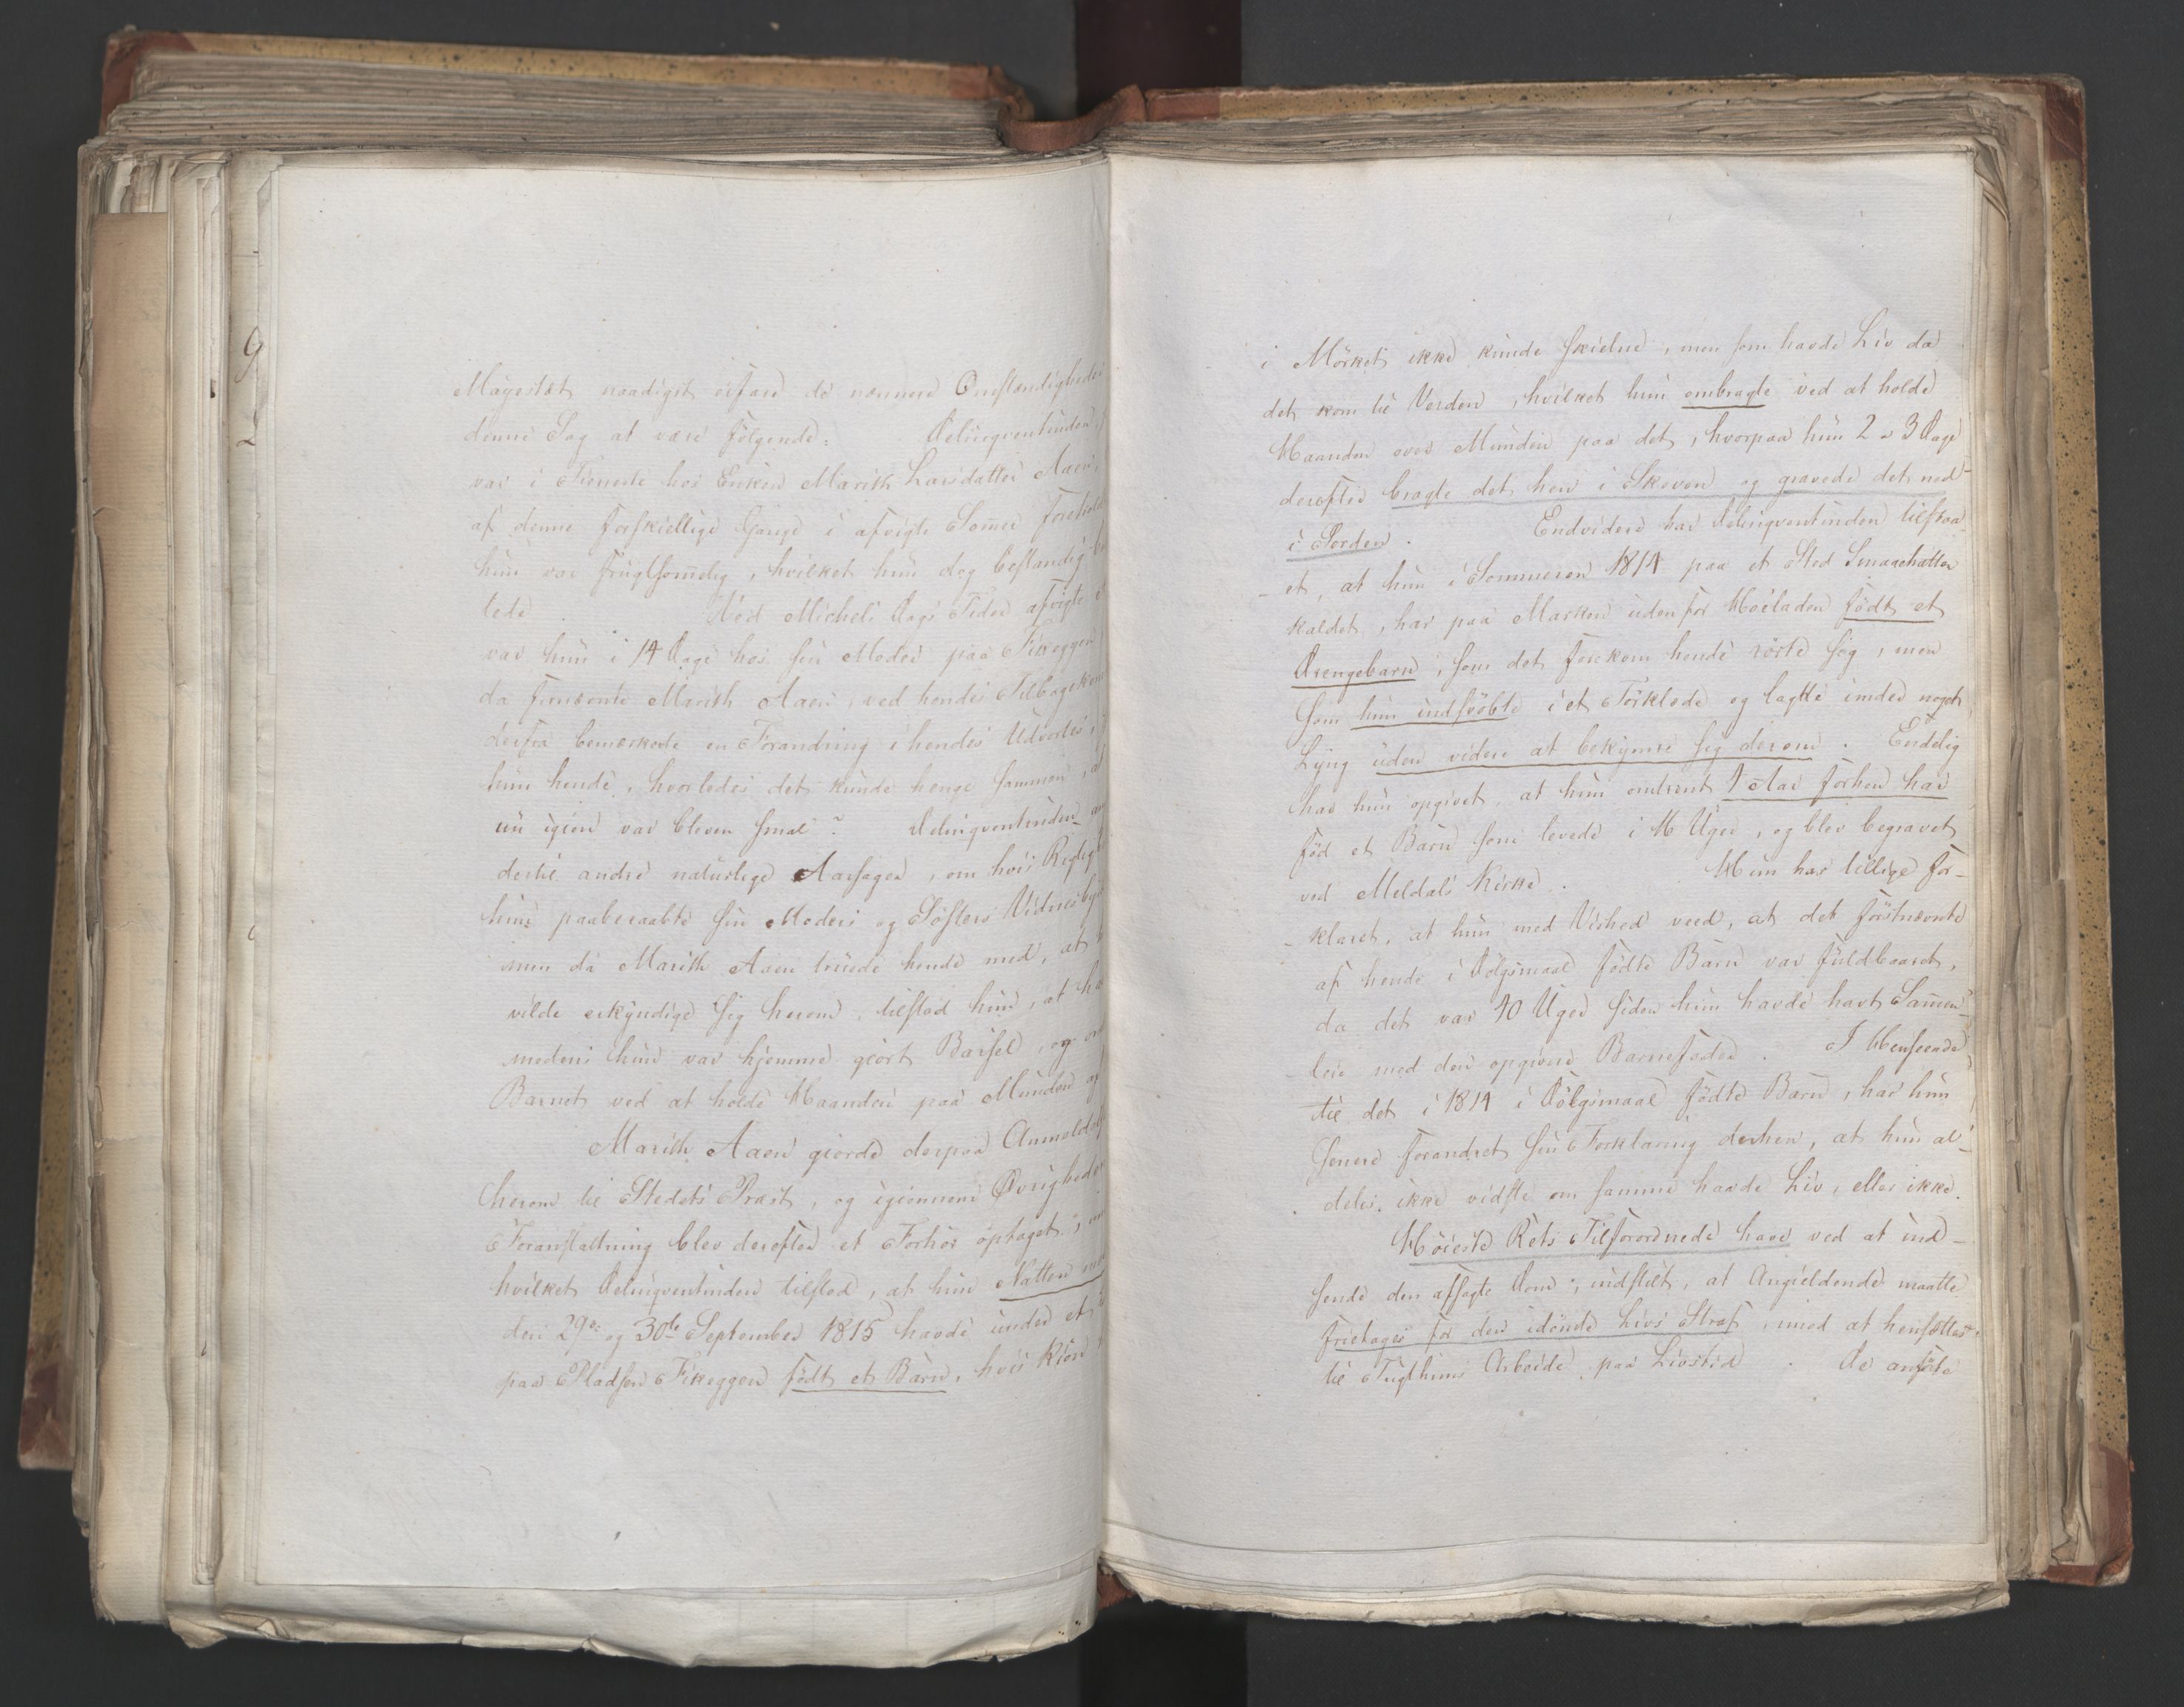 Mayestæt naadigst erfare de nærmere Omstændigheder
denne Sag at være følgende: Delinqventinden
var i Tieneste hos Enken Marith Larsdatter Aaen,
af denne forskiellige Gange i afvigte Somer foreholdt
hun var frugtsomelig, hvilket hun dog bestandig
tede. Ved Micheli Dags Tider afvigte
var hun i 14 Dage hos sin Moder paa Fikeggen
da fornævnte Marith Aaen, ved hendes Tilbagekomst
derfra bemærkede en Forandring i hendes Udvortes,
hun hende, hvorledes det kunde henge sammen, at
nu igien var bleven smal? Delinqventinden
dertil andre naturlige Aarsager, om hvis Rigtighed
hun paaberaabte sin Moders og Søsters Vidnesbyrd
men da Marith Aaen truede hende med, at
vilde erkyndige sig herom, tilstod hun, at
medens hun var hjemme giort Barsel, og
Barnet ved at holde Haanden paa Munden af
Marith Aaen giorde derpaa Anmeldelse
herom til Stedets Præst, og igiennem Øvrighedens
Foranstaltning blev derefter et Forhør optaget,
hvilket Delinqventinden tilstod, at hun Natten
den 29e og 30te September 1815 havde under et
paa Pladsen Fikeggen født et Barn, hvis Kiøn
i Mørket ikke kunde skielne, men som havde Liv da
det kom til Verden, hvilket hun ombragte ved at holde
Haanden over Munden paa det, hvorpaa hun 2 a 3 Dage
derefter bragte det hen i Skoven og gravede det ned
i Jorden. Endvidere har Delinqventinden tilstaa-
-et, at hun i Sommeren 1814 paa et Sted Smaaehatten
kaldet, har paa Marken udenfor Høeladen født et
Drengebarn, som det forekom hende rørte sig, men
som hun indsvøbte i et Forklæde og lagde under noget
Lyng uden videre at bekymre sig derom. Endelig
har hun opgivet, at hun omtrent 1 Aar forhen har
fød et Barn som levede i 16 Uger, og blev begravet
ved Meldals Kirke. Hun har tillige for-
-klaret, at hun med Vished veed, at det førstnævnte
af hende i Dølgsmaal fødte Barn var fuldbaaret,
da det var 40 Uger siden hun havde havt Samen-
leie med den opgivne Barnefader. I Henseende
til det i 1814 i Dølgsmaal fødte Barn, har hun
senere forandret sin Forklaring derhen, at hun al-
deles ikke vidste om samme havde Liv, eller ikke.
Høieste Rets Tilforordnede have ved at ind-
sende den afsagte Dom, indstilt, at Angieldende maatte
fritages for den idømte Livs Straf, imod at hensættes
til Tugthuus Arbeide paa Livstid. De anføre